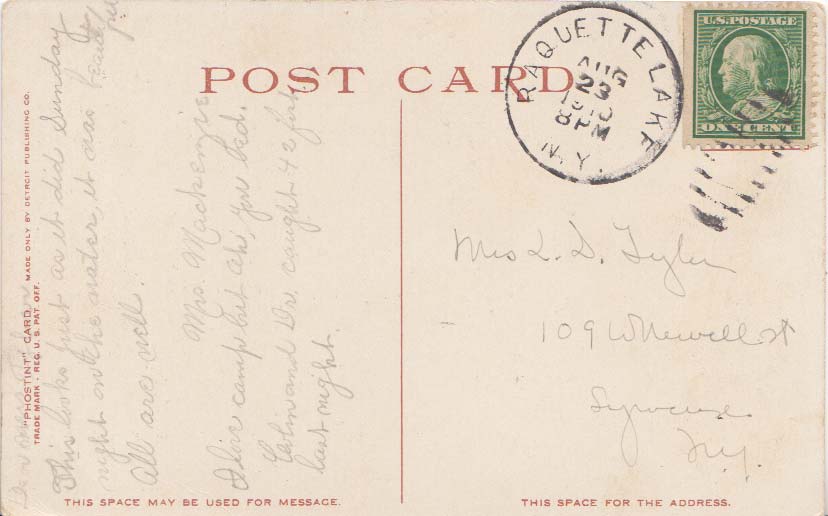 POST CARD
RAQUETTE LAKE
AUG
23
1910
8PM
N.Y.
U.S. POSTAGE
ONE CENT
"PHOSTINT" CARD MADE ONLY BY DETROIT PUBLISHING CO.
TRADE MARK - REG. U.S. PAT. OFF.
This looks just as it did Sunday
night on the water, it was beauty
All are well.
Mrs Mackenzie
I love camp but Oh, you bed.
and Dr. caught 42 fish
last night.
Mrs L. D. Tyler
109 W Newell st
Syracuse
N.Y.
THIS SPACE MAY BE USED FOR MESSAGE.
THIS SPACE FOR THE ADDRESS.